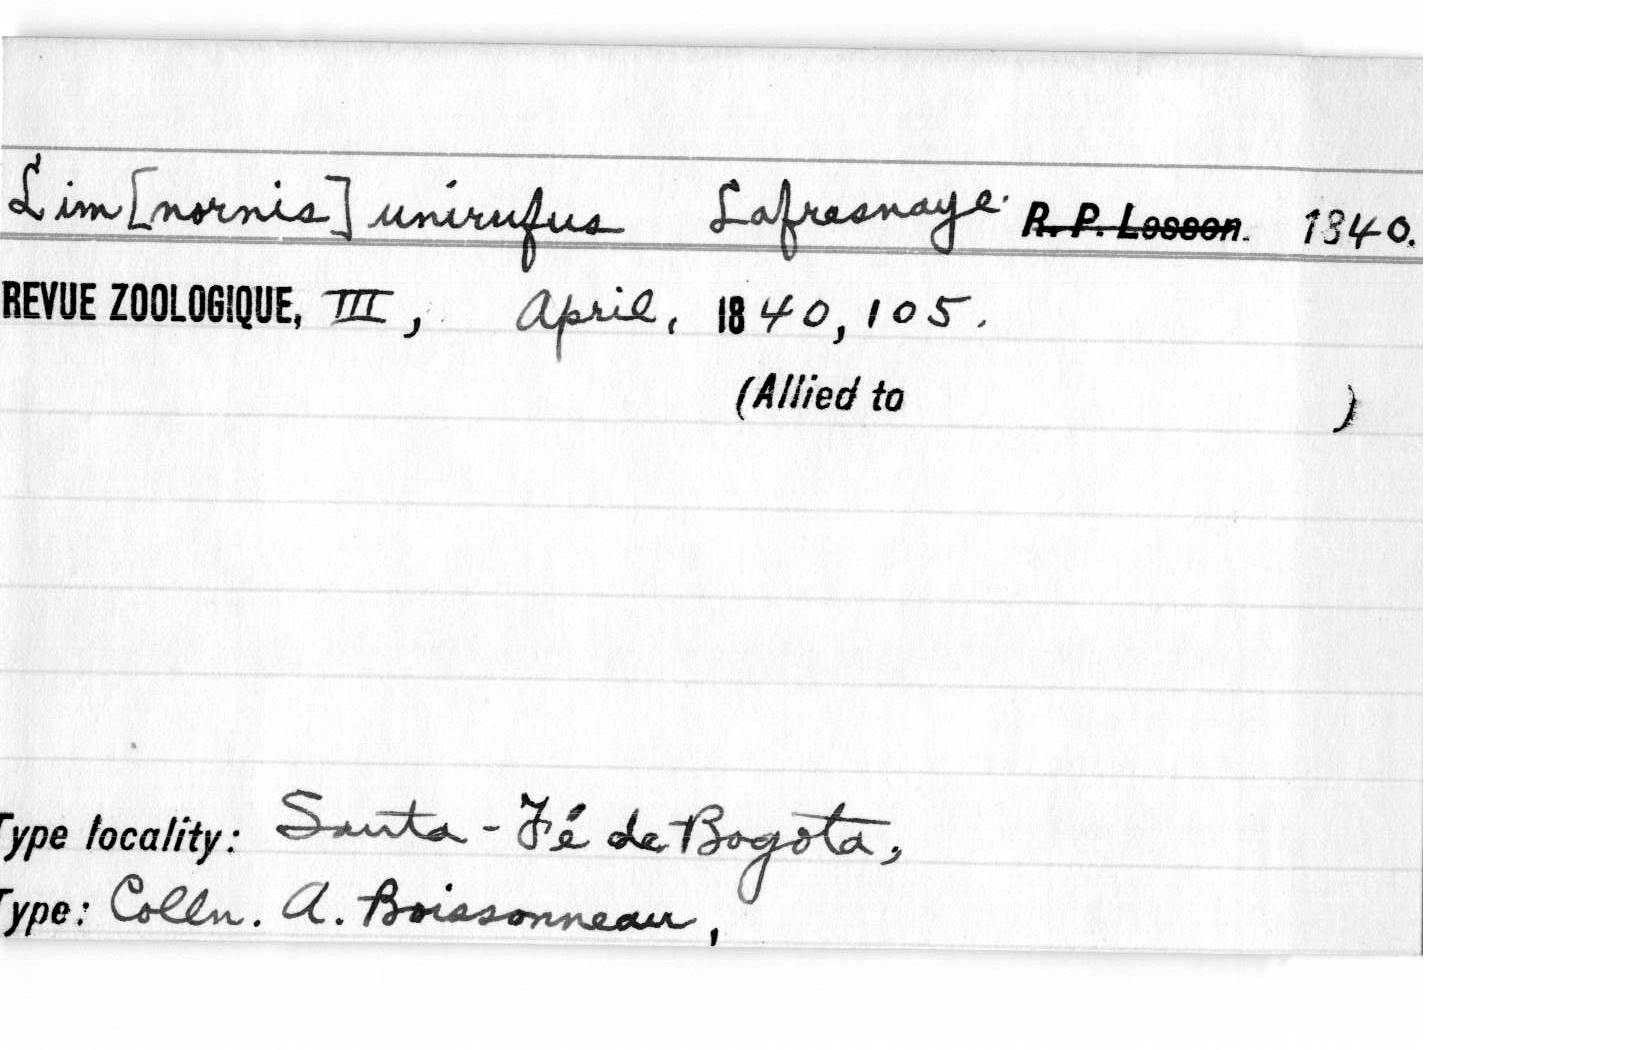 Lim[nornis] unirufus Lafresnaye. R. P. Lesson. 1840.
REVUE ZOOLOGIQUE, III, April, 1840, 105.
(Allied to )
Type locality: Santa-Fé de Bogota,
Type: Colln. A. Boissonneau,